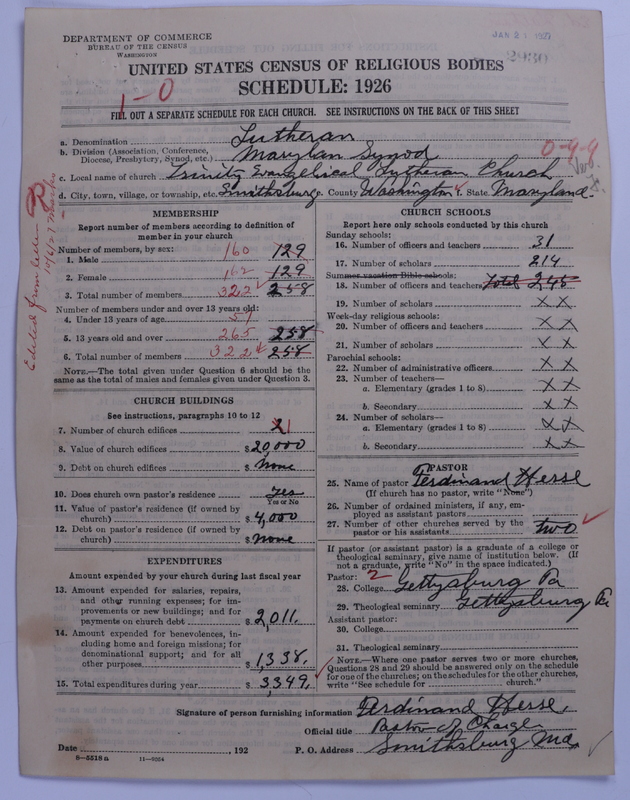 DEPARTMENT OF COMMERCE
BUREAU OF THE CENSUS
WASHINGTON
JAN 21 1927
2930
UNITED STATES CENSUS OF RELIGIOUS BODIES
SCHEDULE: 1926
1-0
FILL OUT A SEPARATE SCHEDULE FOR EACH CHURCH. SEE INSTRUCTIONS ON THE BACK OF THIS SHEET
a. Denomination Lutheran
b. Division (Association, Conference, Diocese, Presbytery, Synod, etc.) Marylan Synod
0-9-9
c. Local name of church Trinity Evangelical Lutheran Church
d. City, town, village, or township, etc. Smithsburg e. County Washington f. State Maryland
Edited from letter
MEMBERSHIP
Report number of members according to definition of
member in your church
Number of members, by sex:
1. Male 160 129
2. Female 162 129
3. Total number of members 322 258
Number of members under and over 13 years old:
4. Under 13 years of age 57
5. 13 years old and over 265 258
6. Total number of members 322 258
NOTE.—The total given under Question 6 should be the
same as the total of males and females given under Question 3.
CHURCH BUILDINGS
See instructions, paragraphs 10 to 12
7. Number of church edifices 2 1
8. Value of church edifices $ 20,000
9. Debt on church edifices $ None
10. Does church own pastor's residence Yes
Yes or No
11. Value of pastor's residence (if owned by
church) $ 4,000
12. Debt on pastor's residence (if owned by
church) $ None
EXPENDITURES
Amount expended by your church during last fiscal year
13. Amount expended for salaries, repairs,
and other running expenses; for im-
provements or new buildings; and for
payments on church debt $ 2,011.
14. Amount expended for benevolences, in-
cluding home and foreign missions; for
denominational support; and for all
other purposes $ 1,338.
15. Total expenditures during year $ 3,349.
CHURCH SCHOOLS
Report here only schools conducted by this church
Sunday schools:
16. Number of officers and teachers 31
17. Number of scholars 214
Summer vacation Bible schools:
18. Number of officers and teachers Total 245
19. Number of scholars X X
Week-day religious schools:
20. Number of officers and teachers X X
21. Number of scholars X X
Parochial schools:
22. Number of administrative officers X X
23. Number of teachers—
a. Elementary (grades 1 to 8) X X
b. Secondary X X
24. Number of scholars—
a. Elementary (grades 1 to 8) X X
b. Secondary X X
PASTOR
25. Name of pastor Ferdinand Hesse
(If church has no pastor, write "None")
26. Number of ordained ministers, if any, em-
ployed as assistant pastors
27. Number of other churches served by the
pastor or his assistants two
If pastor (or assistant pastor) is a graduate of a college or
theological seminary, give name of institution below. (If
not a graduate, write "No" in the space indicated.)
Pastor: 2
28. College Gettysburg Pa
29. Theological seminary Gettysburg Pa
Assistant pastor:
30. College
31. Theological seminary
NOTE.—Where one pastor serves two or more churches,
Questions 28 and 29 should be answered only on the schedule
for one of the churches; on the schedules for the other churches,
write "See schedule for church."
Signature of person furnishing information Ferdinand Hesse,
Official title Pastor In Charge
Date , 192 P. O. Address Smithsburg Md
8-5518 a 11-9354